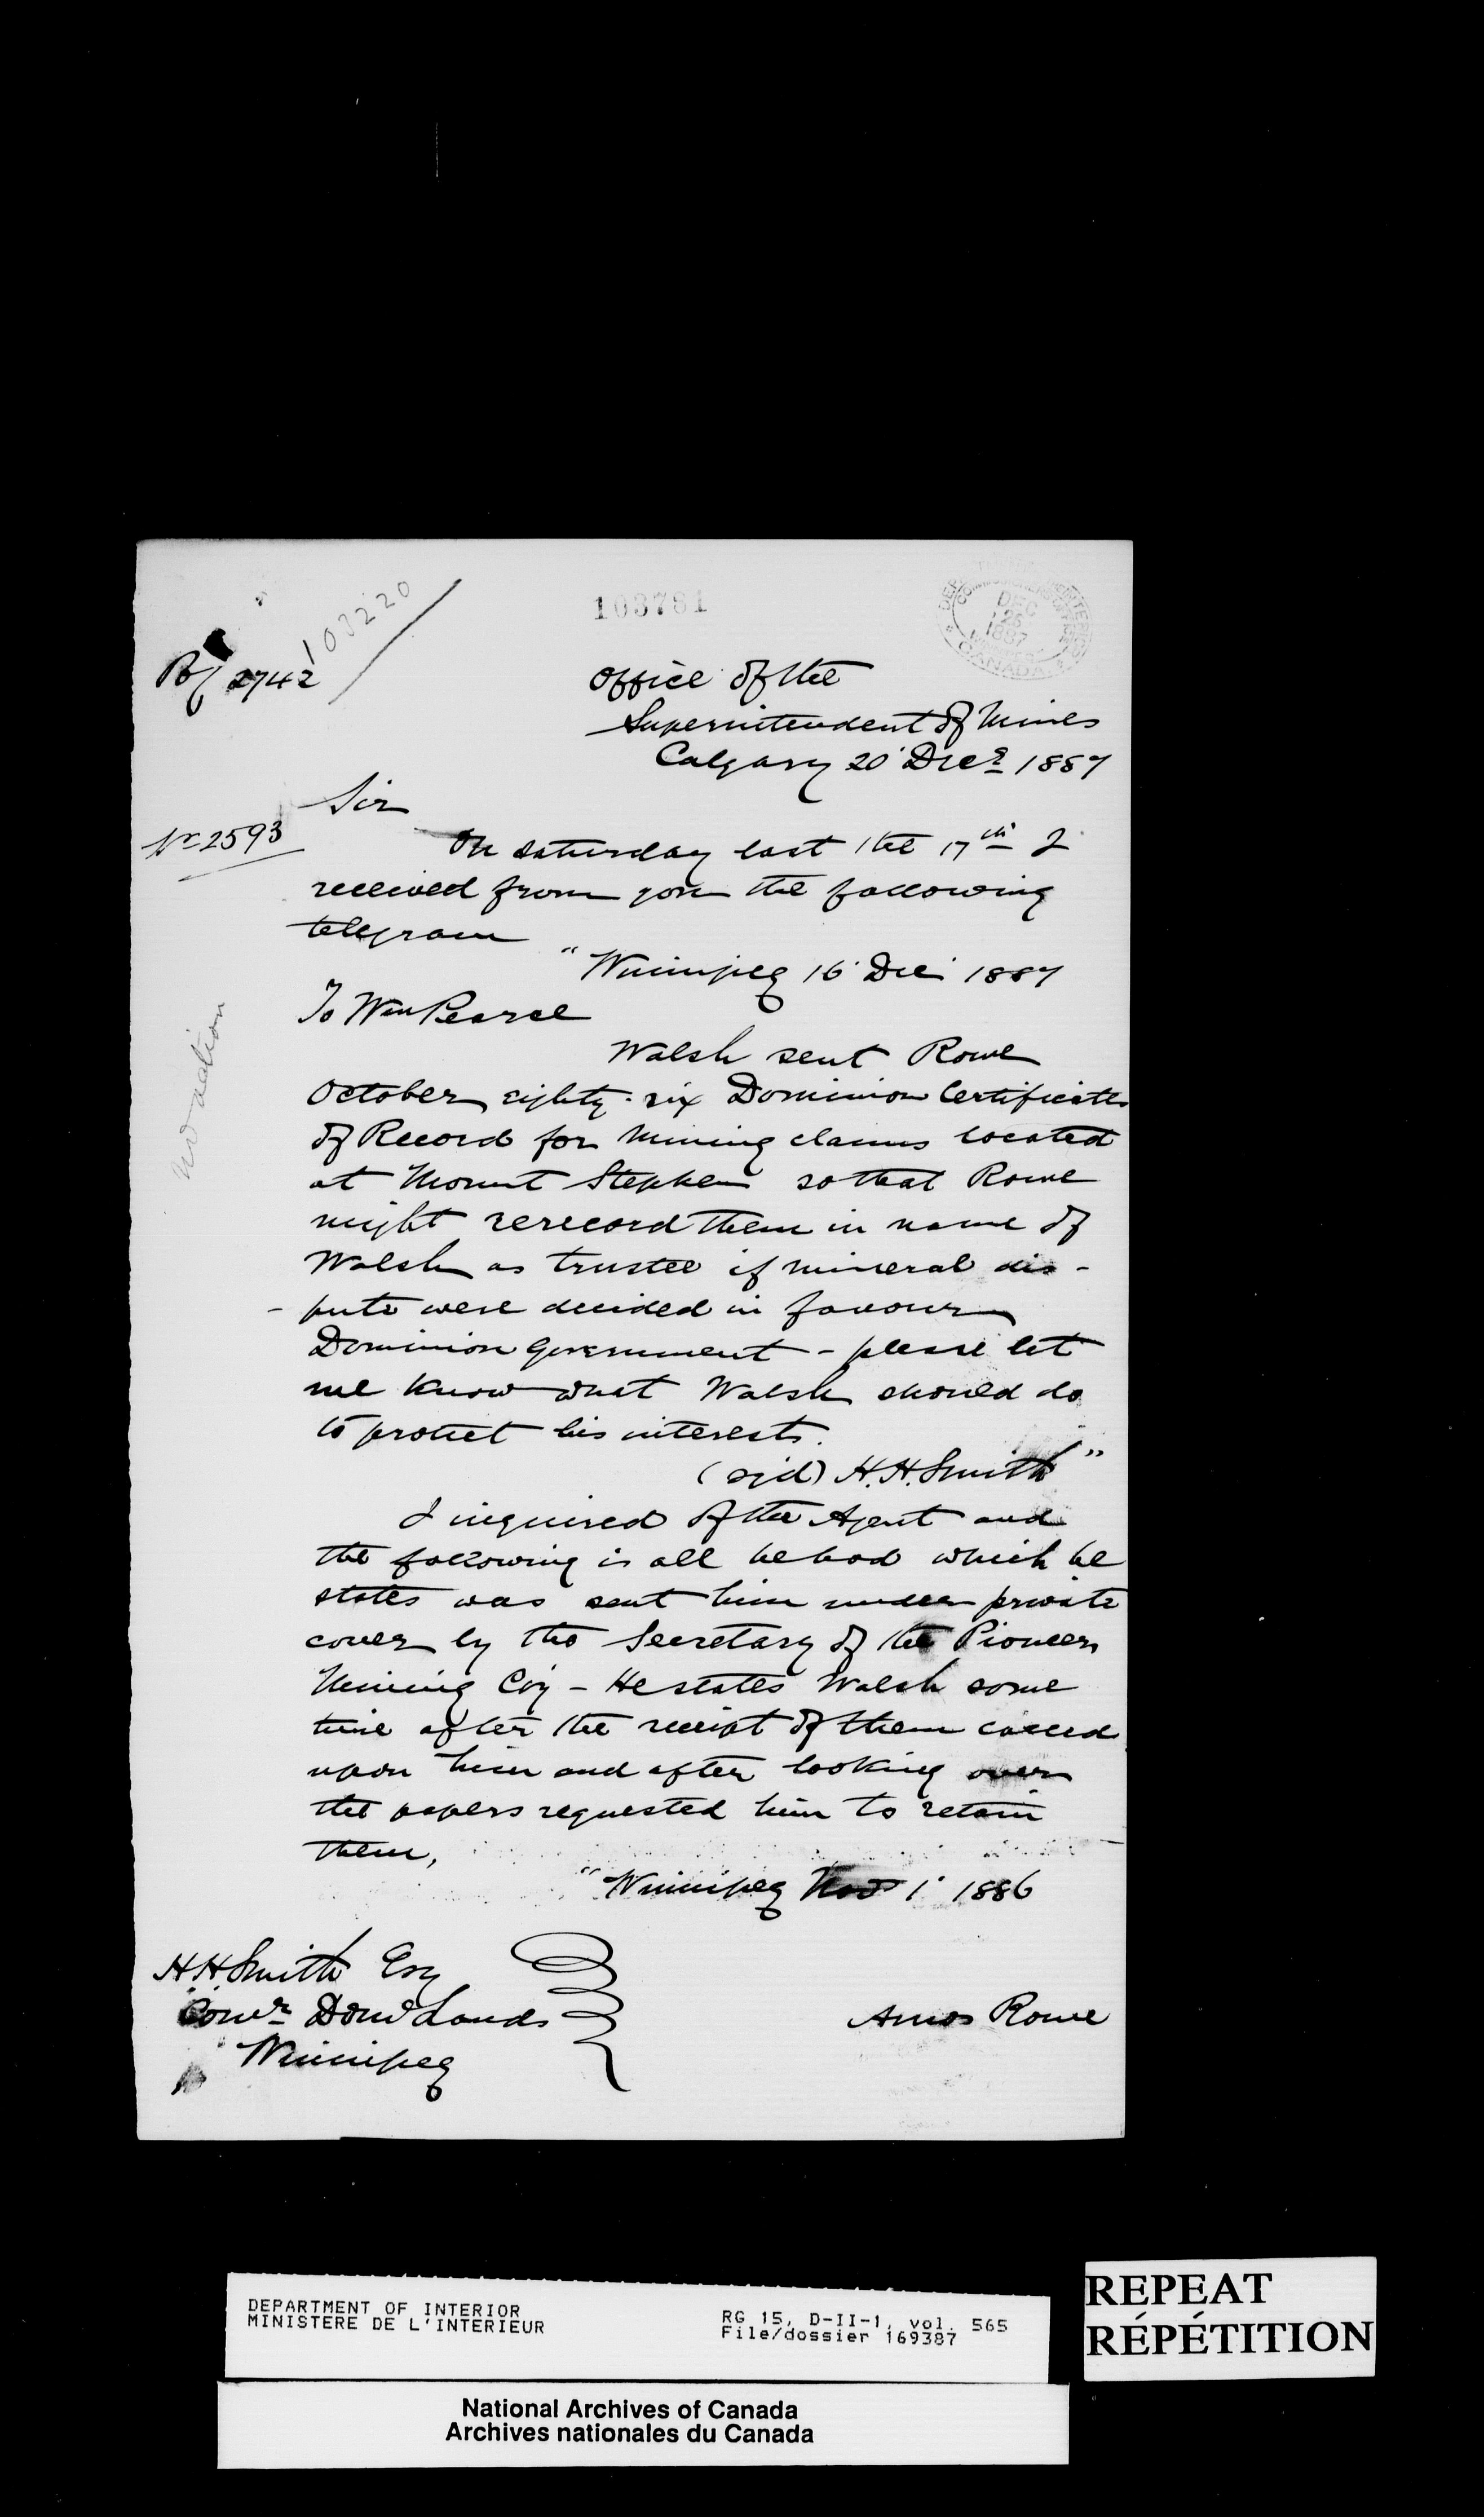 103220
103781
DEC
1887
CANADA
Rf 2742
Office of the
Superintendent of Mines
Calgary 20' Decr 1887
Sir
No 2593
On Saturday last the 17th I
received from you the following
telegram
"Winnipeg 16' Dec' 1887
To Wm Pearce
Walsh sent Rowe
October eighty-six Dominion Certificates
of Record for Mining claims located
at Mount Stephen so that Rowe
might rerecord them in name of
Walsh as trustee if mineral dis-
-pute were decided in favour
Dominion Government - please let
me know what Walsh should do
to protect his interests.
(sjd) H.H. Smith"
no action
I inquired of the Agent and
the following is all he had which he
states was sent him under private
cover by the Secretary of the Pioneer
Mining Coy - He states Walsh some
time after the receipt of them called
upon him and after looking over
the papers requested him to retain
them,
"Winnipeg Nov 1' 1886
H.H. Smith Esq
Comr Domn Lands
Winnipeg
Amos Rowe
DEPARTMENT OF INTERIOR
MINISTERE DE L'INTERIEUR
RG 15, D-II-1, vol. 565
File/dossier 169387
REPEAT
RÉPÉTITION
National Archives of Canada
Archives nationales du Canada